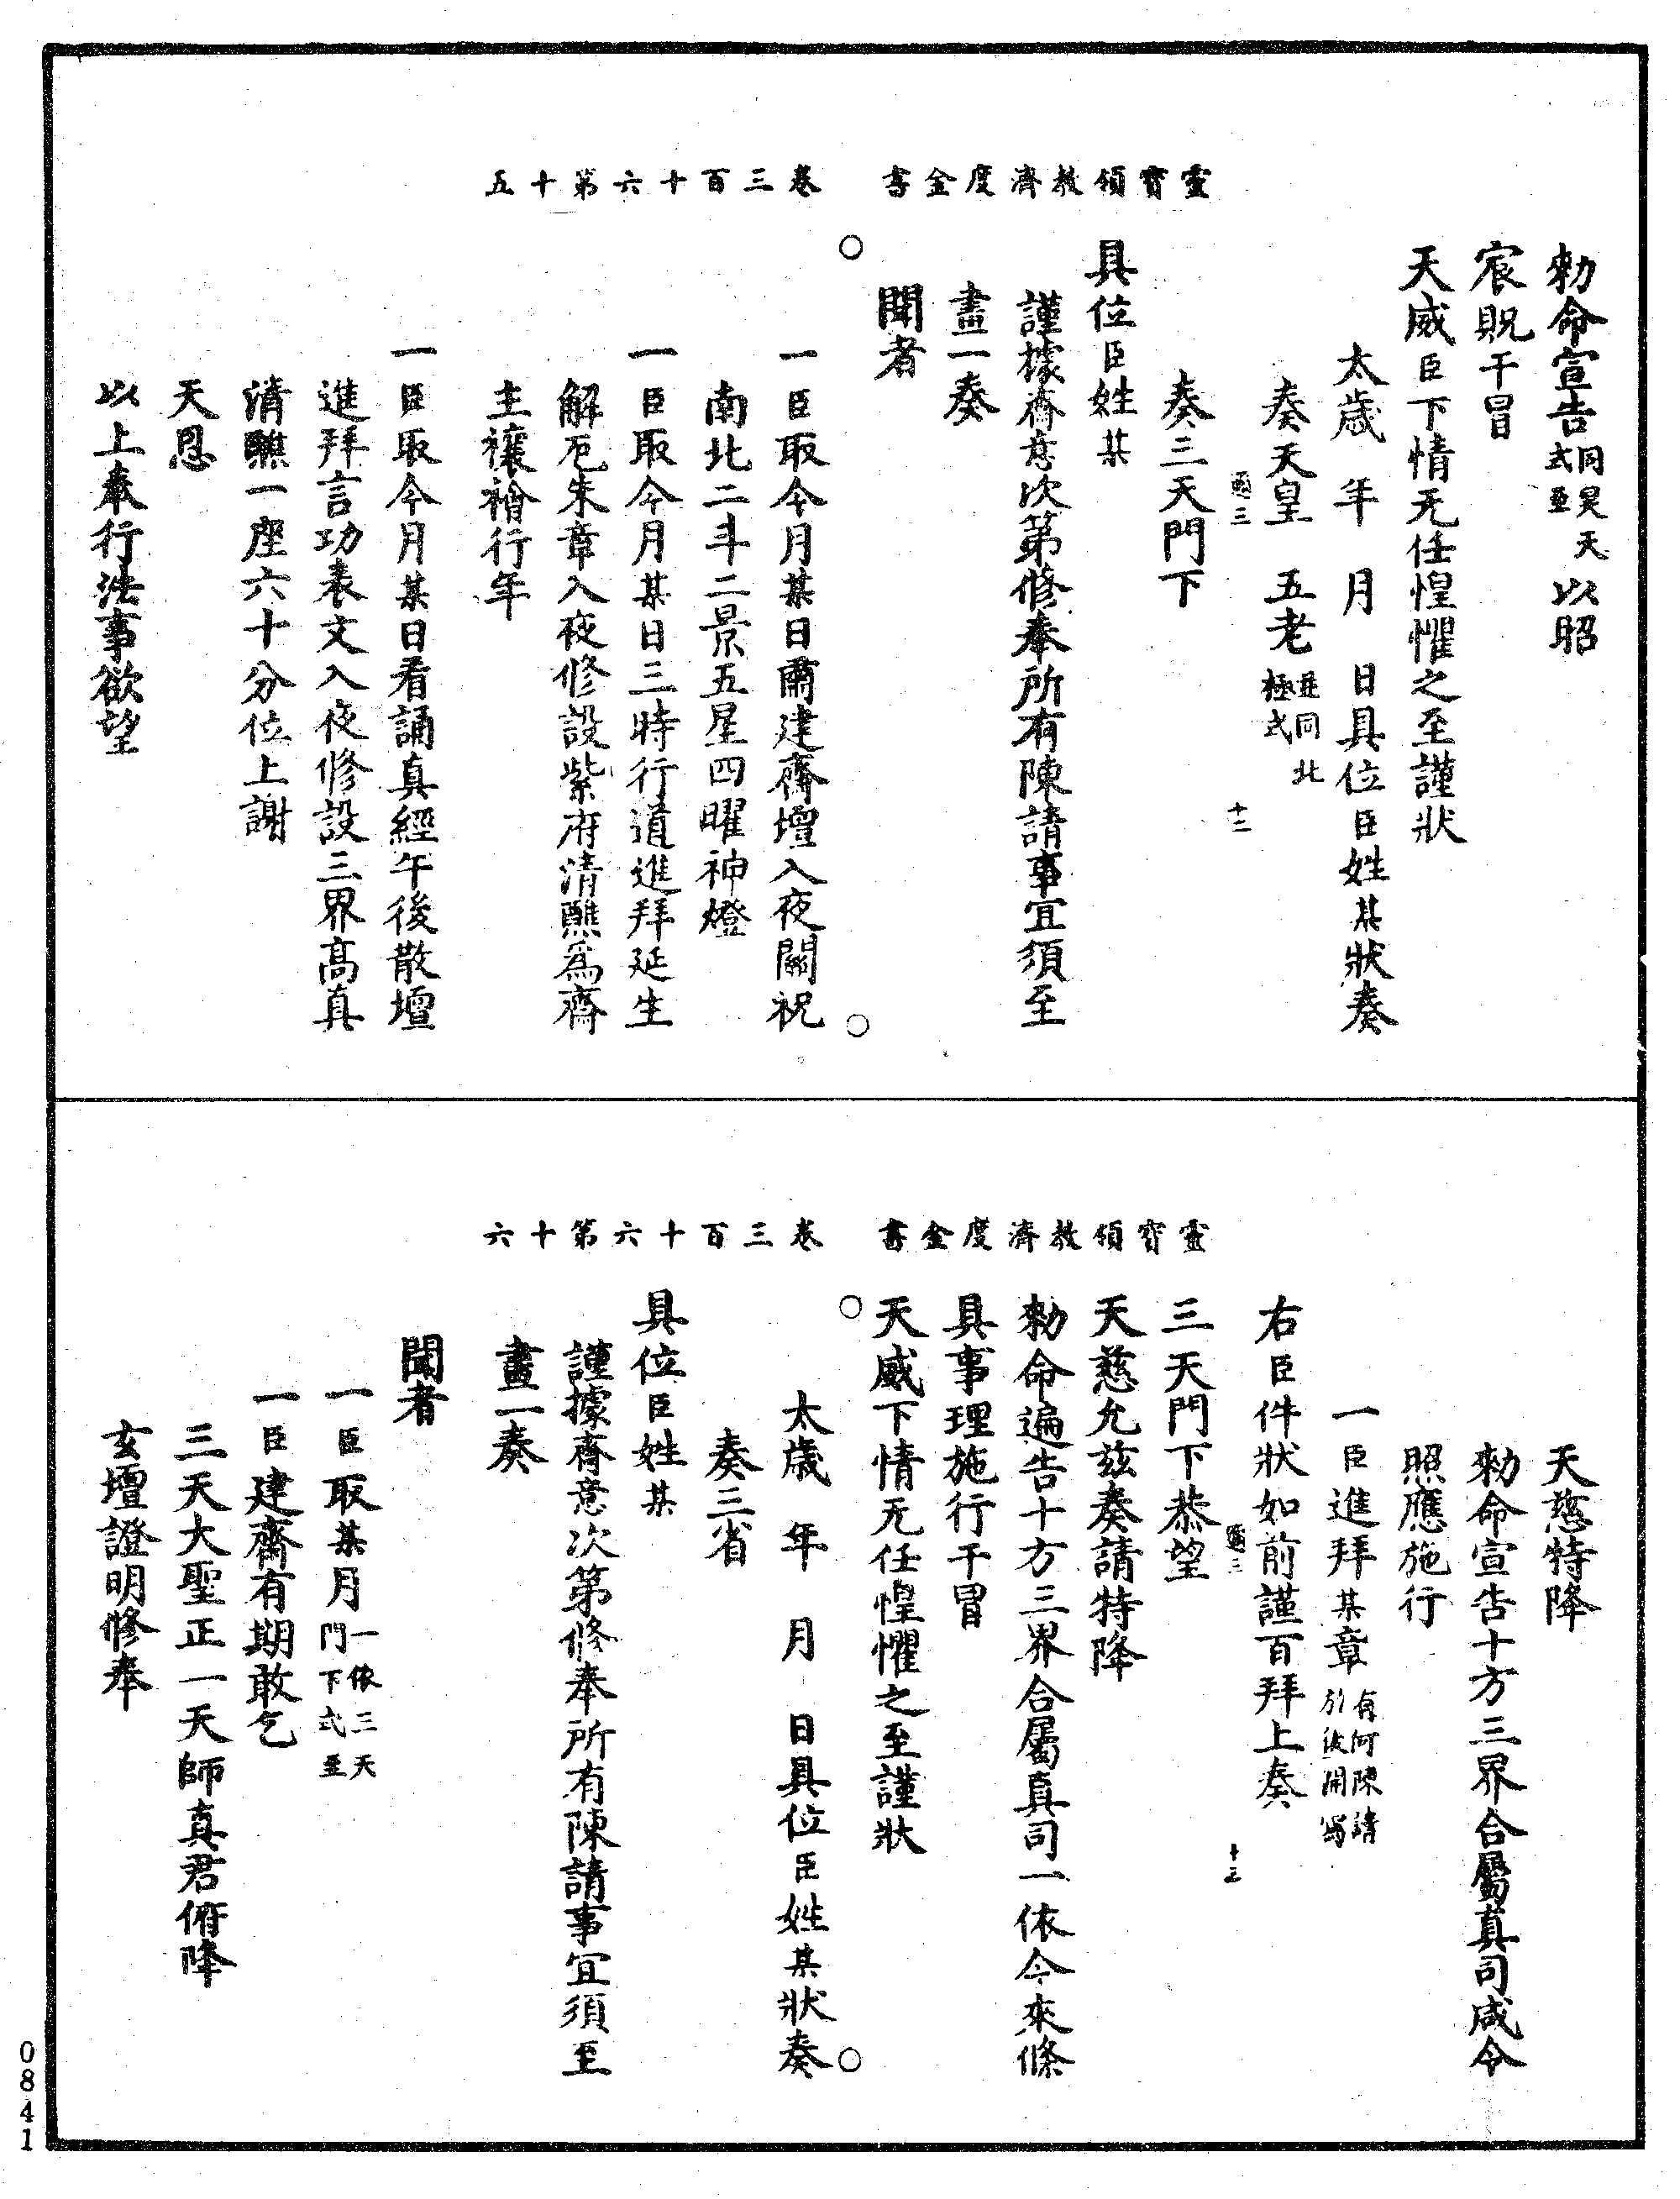 靈寶領教濟度金書　卷三百十六第十五
勑命宣告同昊天式至以昭
宸貺干冒
天威臣下情无任惶懼之至謹狀
太歲　年　月　日具位臣姓某狀奏
奏天皇　五老並同北極式
國三　十二
奏三天門下
具位臣姓某
謹據齋意次第修奉所有陳請事宜須至
畫一奏
聞者
一臣取今月某日肅建齋壇入夜關祝
南北二斗二景五星四曜神燈
一臣取今月某日三時行道進拜延生
解厄朱章入夜修設紫府清醮爲齋
主禳禬行年
一臣取今月某日看誦真經午後散壇
進拜言功表文入夜修設三界高真
清醮一座六十分位上謝
天恩
以上奉行法事欲望
靈寶領教濟度金書　卷三百十六第十六
天慈特降
勑命宣告十方三界合屬真司咸令
照應施行
一臣進拜某章有何陳請引後開寫
右臣件狀如前謹百拜上奏
國三　十三
三天門下恭望
天慈允茲奏請特降
勑命遍告十方三界合屬真司一依今來條
具事理施行干冒
天威下情无任惶懼之至謹狀
太歲　年　月　日具位臣姓某狀奏
奏三省
具位臣姓某
謹據齋意次第修奉所有陳請事宜須至
畫一奏
聞者
一臣取某月一依三天門下式至
一臣建齋有期敢乞
三天大聖正一天師真君俯降
玄壇證明修奉
0841